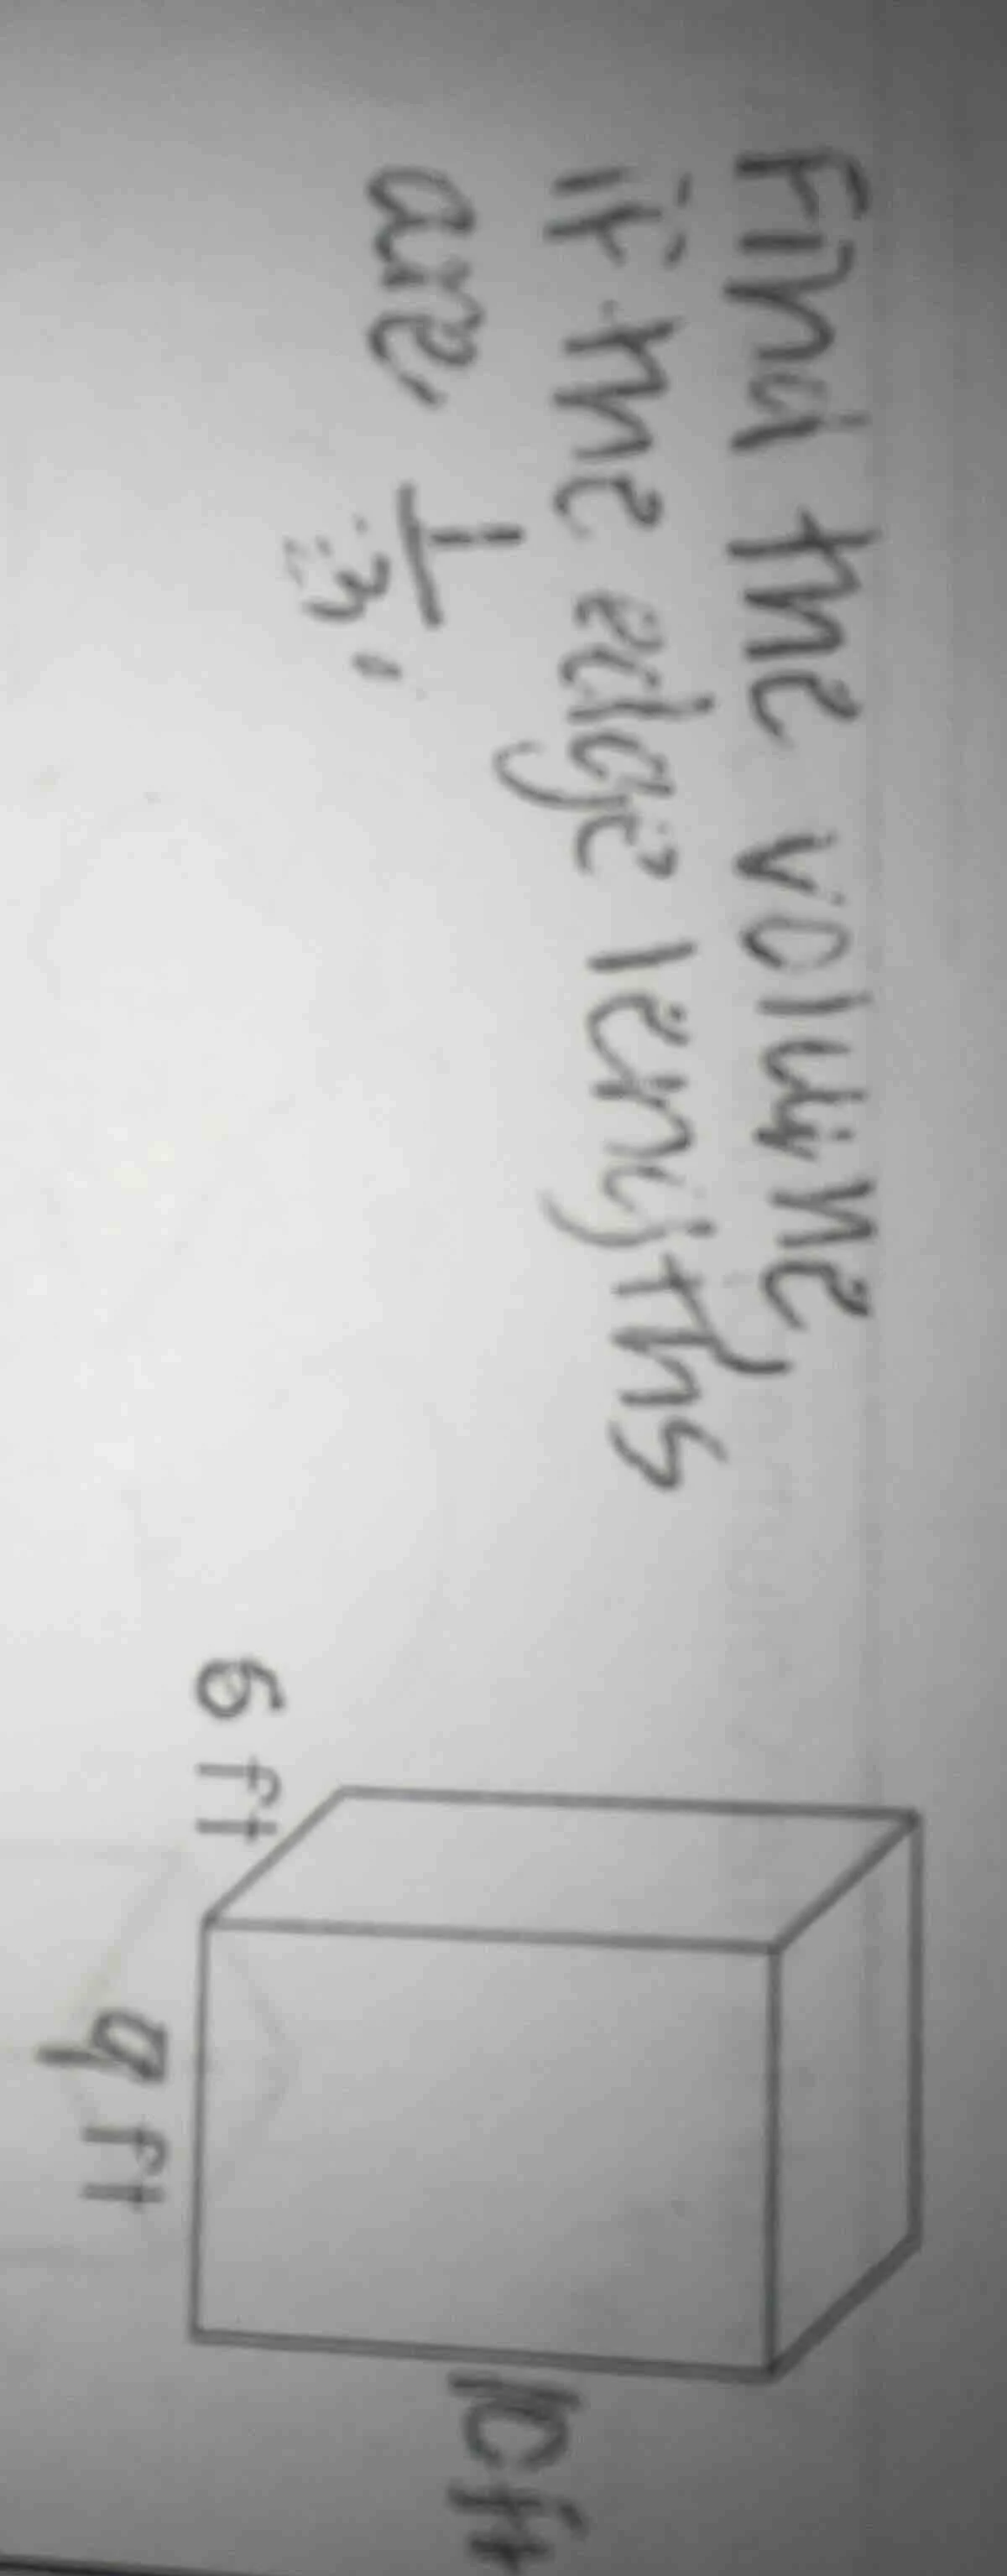 Find the volume,
if the edge lengths
are 1/3.
6 ft
9 ft
10ft